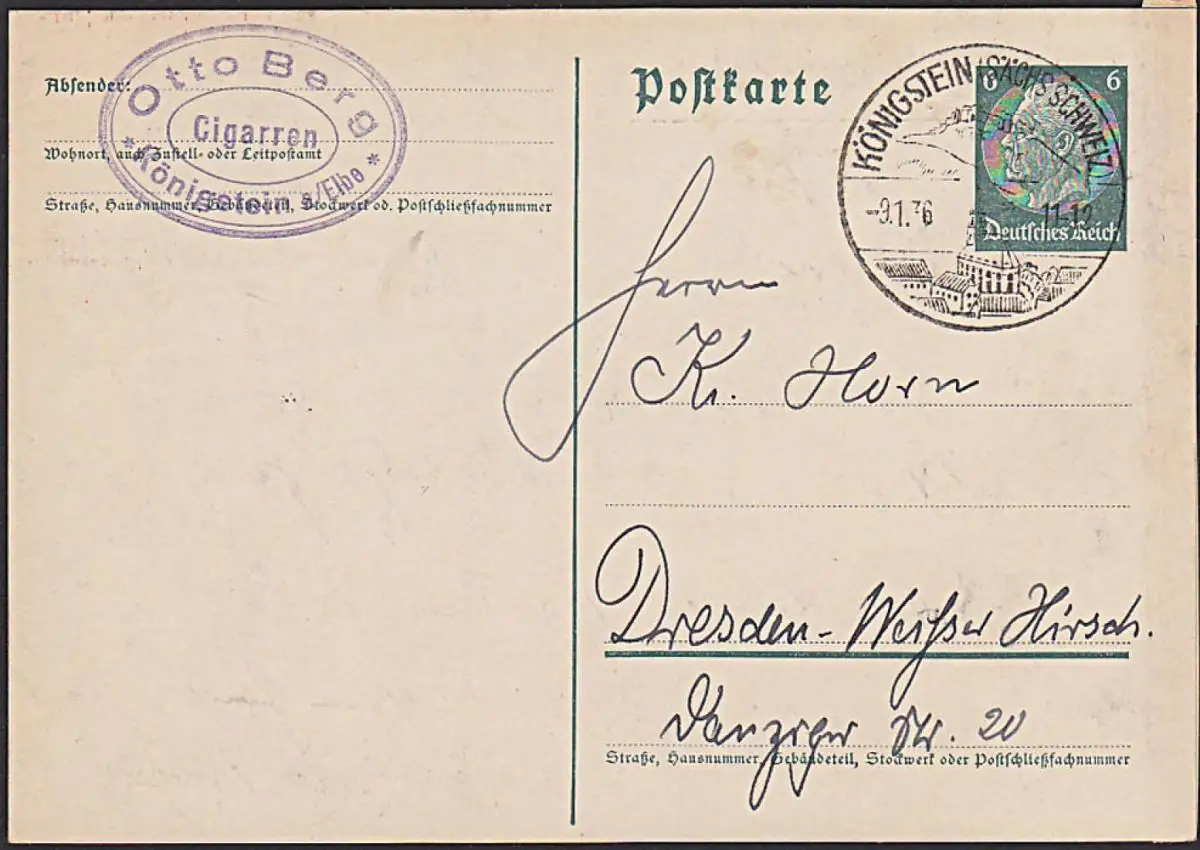 Absender:
Otto Berg
Cigarren
* Königstein a/Elbe *
Wohnort, auch Zustell- oder Leitpostamt
Straße, Hausnummer, Gebäudeteil, Stockwerk od. Postschließfachnummer
Postkarte
KÖNIGSTEIN (SÄCHS SCHWEIZ)
-9.1.36 11-12
6 6
Deutsches Reich
Herrn
K. Horn
Dresden-Weißer Hirsch.
Danziger Str. 20
Straße, Hausnummer, Gebäudeteil, Stockwerk oder Postschließfachnummer